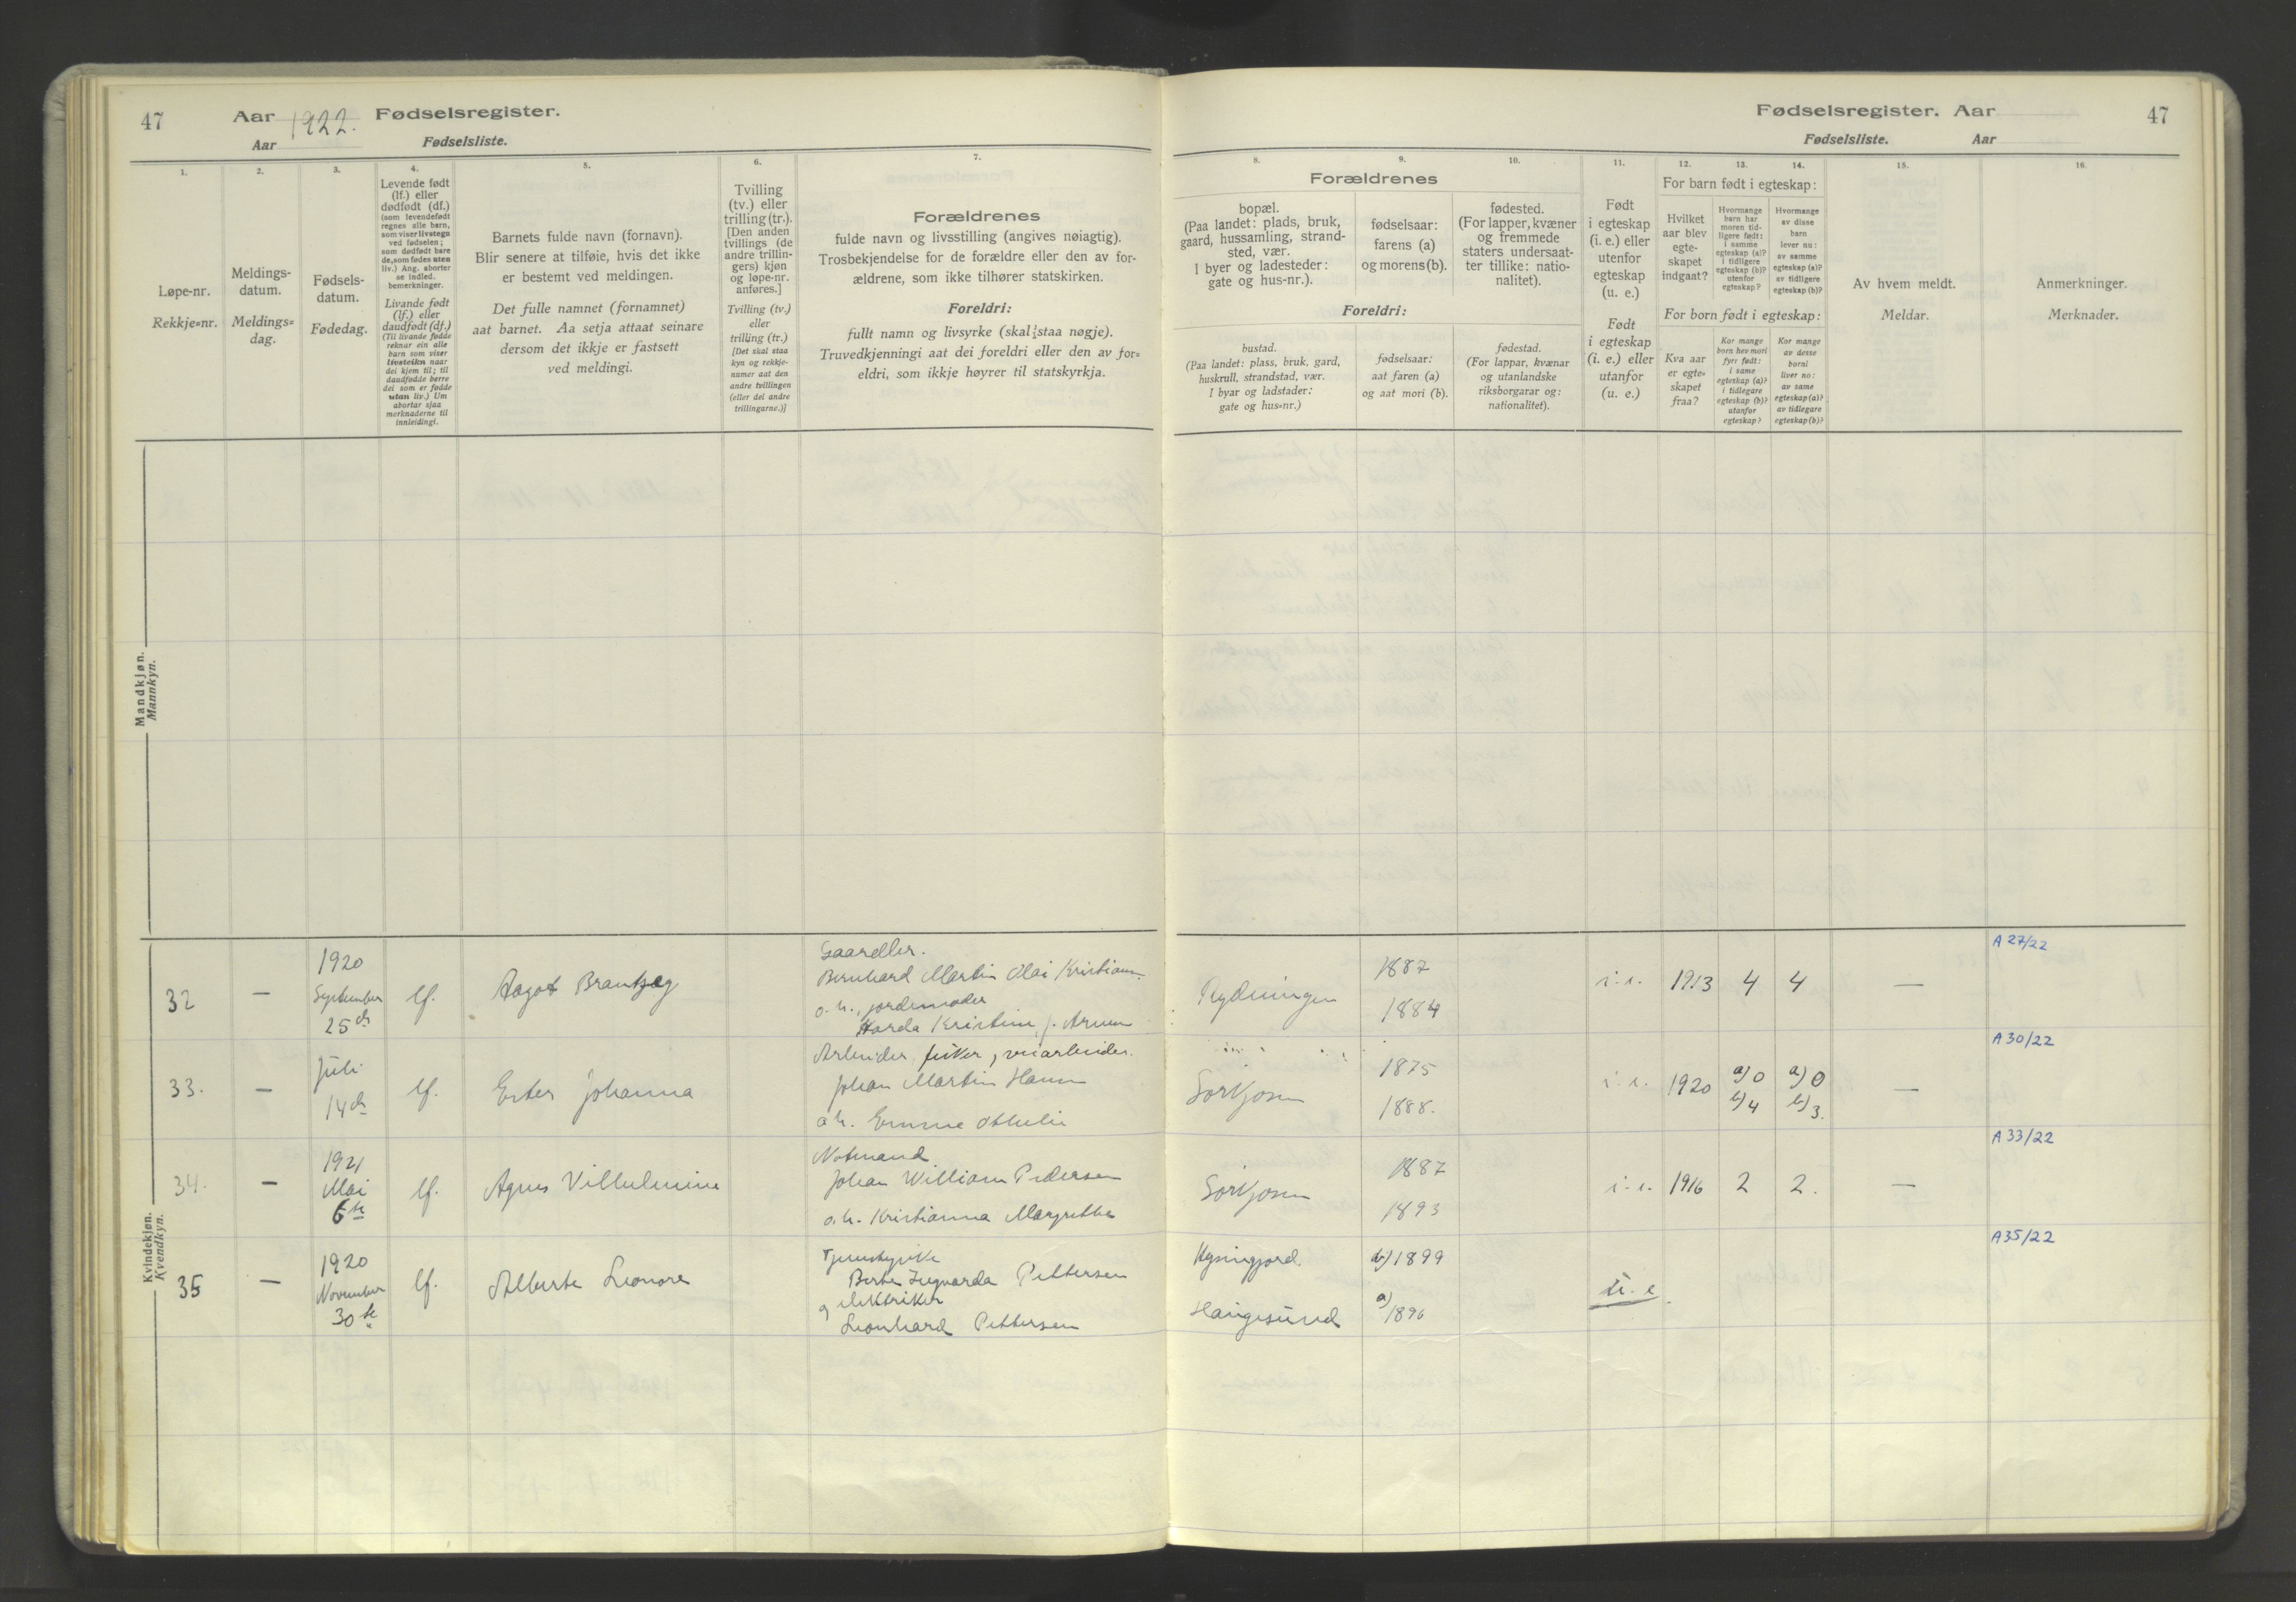 47
Aar 1922. Fødselsregister.
Aar
Fødselsliste.
1.
2.
3.
4.
5.
6.
7.
Løpe-nr.
Rekkje=nr.
Meldings-
datum.
Meldings=
dag.
Fødsels-
datum.
Fødedag.
Levende født
(lf.) eller
dødfødt (df.)
(som levendefødt
regnes alle barn,
som viser livstegn
ved fødselen;
som dødfødt bare
de, som fødes uten
liv.) Ang. aborter
se indled.
bemerkninger.
Livande født
(lf.) eller
daudfødt (df.)
(Til livande fødde
reknar ein alle
barn som viser
livsteikn naar
dei kjem til; til
daudfødde berre
dei som er fødde
utan liv.) Um
abortar sjaa
merknaderne til
innleidingi.
Barnets fulde navn (fornavn).
Blir senere at tilføie, hvis det ikke
er bestemt ved meldingen.
Det fulle namnet (fornamnet)
aat barnet. Aa setja attaat seinare
dersom det ikkje er fastsett
ved meldingi.
Tvilling
(tv.) eller
trilling (tr.).
[Den anden
tvillings (de
andre trillin-
gers) kjøn
og løpe-nr.
anføres.]
Tvilling (tv.)
eller
trilling (tr.)
[Det skal staa
kyn og rekkje-
numer aat den
andre tvillingen
(eller dei andre
trillingarne.)]
Forældrenes
fulde navn og livsstilling (angives nøiagtig).
Trosbekjendelse for de forældre eller den av for-
ældrene, som ikke tilhører statskirken.
Foreldri:
fullt namn og livsyrke (skal staa nøgje).
Truvedkjenningi aat dei foreldri eller den av for=
eldri, som ikkje høyrer til statskyrkja.
Mandkjøn.
Mannkyn.
32
—
1920
September
25de
lf.
Aagot Brantzæg
Bernhard Martin Olai Kristians.
o. h., jordemoder
33.
—
Juli
14de
lf.
Ester Johanna
Arbeider, fisker, veiarbeider.
Johan Martin Hansen
o h. Emma Othelie
34.
—
1921
Mai
6te
lf.
Agnes Villielmine
Notmand
Johan William Pedersen
o. h. Kristianna Margrethe
Kvindekjøn.
Kvendkyn.
35
—
1920
November
30te
lf.
Alberte Leonore
Berte Ingvarda Pettersen
og elektriker
Leonhard Pettersen
Fødselsregister. Aar
47
Fødselsliste.
Aar
8.
9.
10.
11.
12.
13.
14.
15.
16.
Forældrenes
bopæl.
(Paa landet: plads, bruk,
gaard, hussamling, strand-
sted, vær.
I byer og ladesteder:
gate og hus-nr.).
fødselsaar:
farens (a)
og morens (b).
fødested.
(For lapper, kvæner
og fremmede
staters undersaat-
ter tillike: natio-
nalitet).
Foreldri:
bustad.
(Paa landet: plass, bruk, gard,
huskrull, strandstad, vær.
I byar og ladstader:
gate og hus=nr.)
fødselsaar:
aat faren (a)
og aat mori (b).
fødestad.
(For lappar, kvænar
og utanlandske
riksborgarar og:
nationalitet).
Født
i egteskap
(i. e.) eller
utenfor
egteskap
(u. e.)
Født
i egteskap
(i. e.) eller
utanfor
(u. e.)
For barn født i egteskap:
Hvilket
aar blev
egte-
skapet
indgaat?
Hvormange
barn har
moren tid-
ligere født:
i samme
egteskap (a)?
i tidligere
egteskap (b)?
utenfor
egteskap?
Hvormange
av disse
barn
lever nu:
av samme
egteskap (a)?
av tidligere
egteskap (b)?
For born født i egteskap:
Kva aar
er egte-
skapet
fraa?
Kor mange
born hev mori
fyrr født:
i same
egteskap (a)?
i tidlegare
egteskap (b)?
utanfor
egteskap?
Kor mange
av desse
borni
liver no:
av same
egteskap (a)?
av tidlegare
egteskap (b)?
Av hvem meldt.
Meldar.
Anmerkninger.
Merknader.
1887
1884
i. e.
1913
4
4
—
A 27/22
Sørkjosen
1875
1888.
i. e.
1920
a) 0
b) 4
a) 0
b) 3.
—
A 30/22
Sørkjosen
1887
1893
i. e.
1916
2
2.
—
A 33/22
b) 1899
Haugesund
a) 1896
u. e.
A 35/22